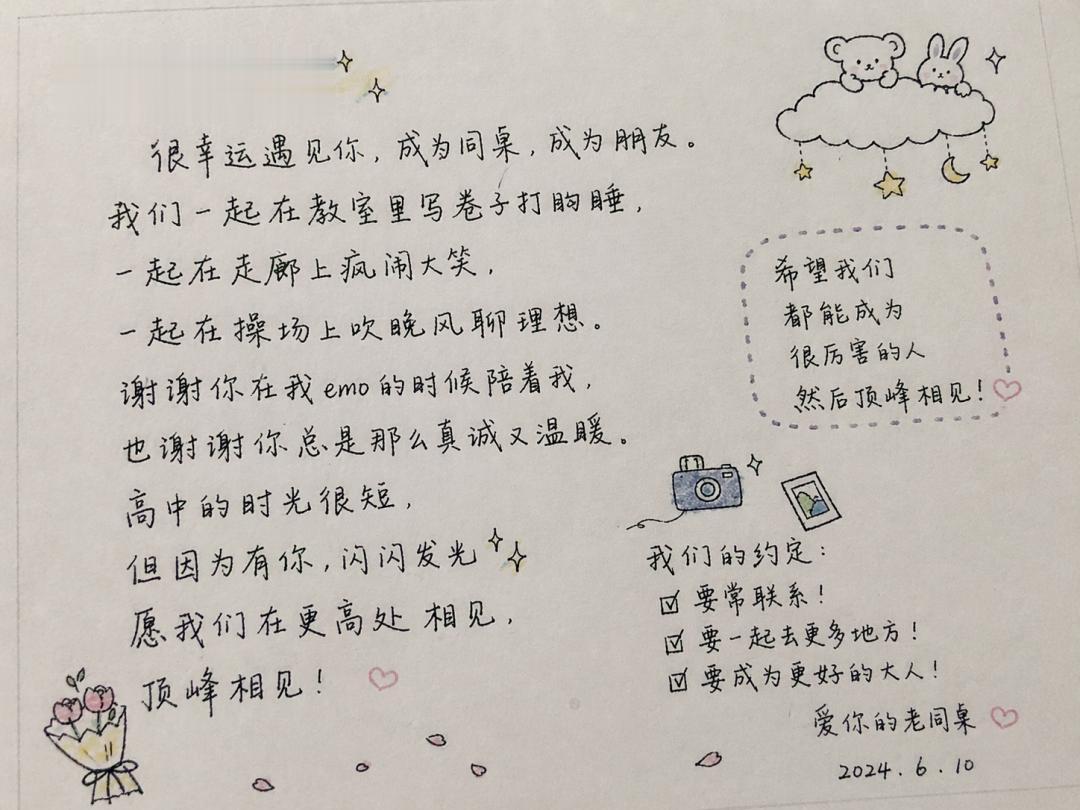 很幸运遇见你，成为同桌，成为朋友。
我们一起在教室里写卷子打瞌睡，
一起在走廊上疯闹大笑，
一起在操场上吹晚风聊理想。
谢谢你在我emo的时候陪着我，
也谢谢你总是那么真诚又温暖。
高中的时光很短，
但因为有你，闪闪发光
愿我们在更高处相见，
顶峰相见！
希望我们
都能成为
很厉害的人
然后顶峰相见！
我们的约定：
☑ 要常联系！
☑ 要一起去更多地方！
☑ 要成为更好的大人！
爱你的老同桌
2024.6.10